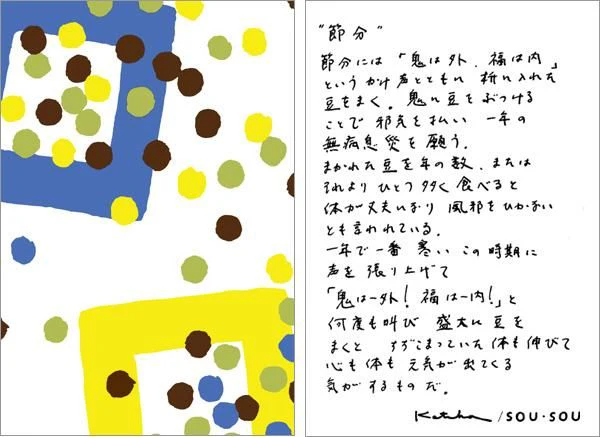 "節分"
節分には「鬼は外、福は内」
というかけ声とともに 枡に入れた
豆をまく。鬼に豆をぶつける
ことで 邪気を払い 一年の
無病息災を願う。
まかれた豆を年の数、または
それより ひとつ多く食べると
体が丈夫になり 風邪をひかない
とも言われている。
一年で一番 寒い この時期に
声を張り上げて
「鬼は一外！福は一内！」と
何度も叫び 盛大に豆を
まくと ちぢこまっていた体も伸びて
心も体も 元気が出てくる
気がするものだ。
Katsuji / SOU・SOU